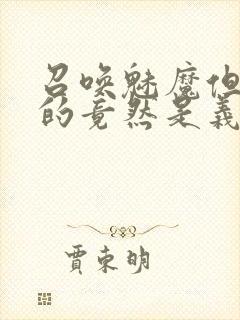 召唤魅魔但
的竟然是义
贾东明